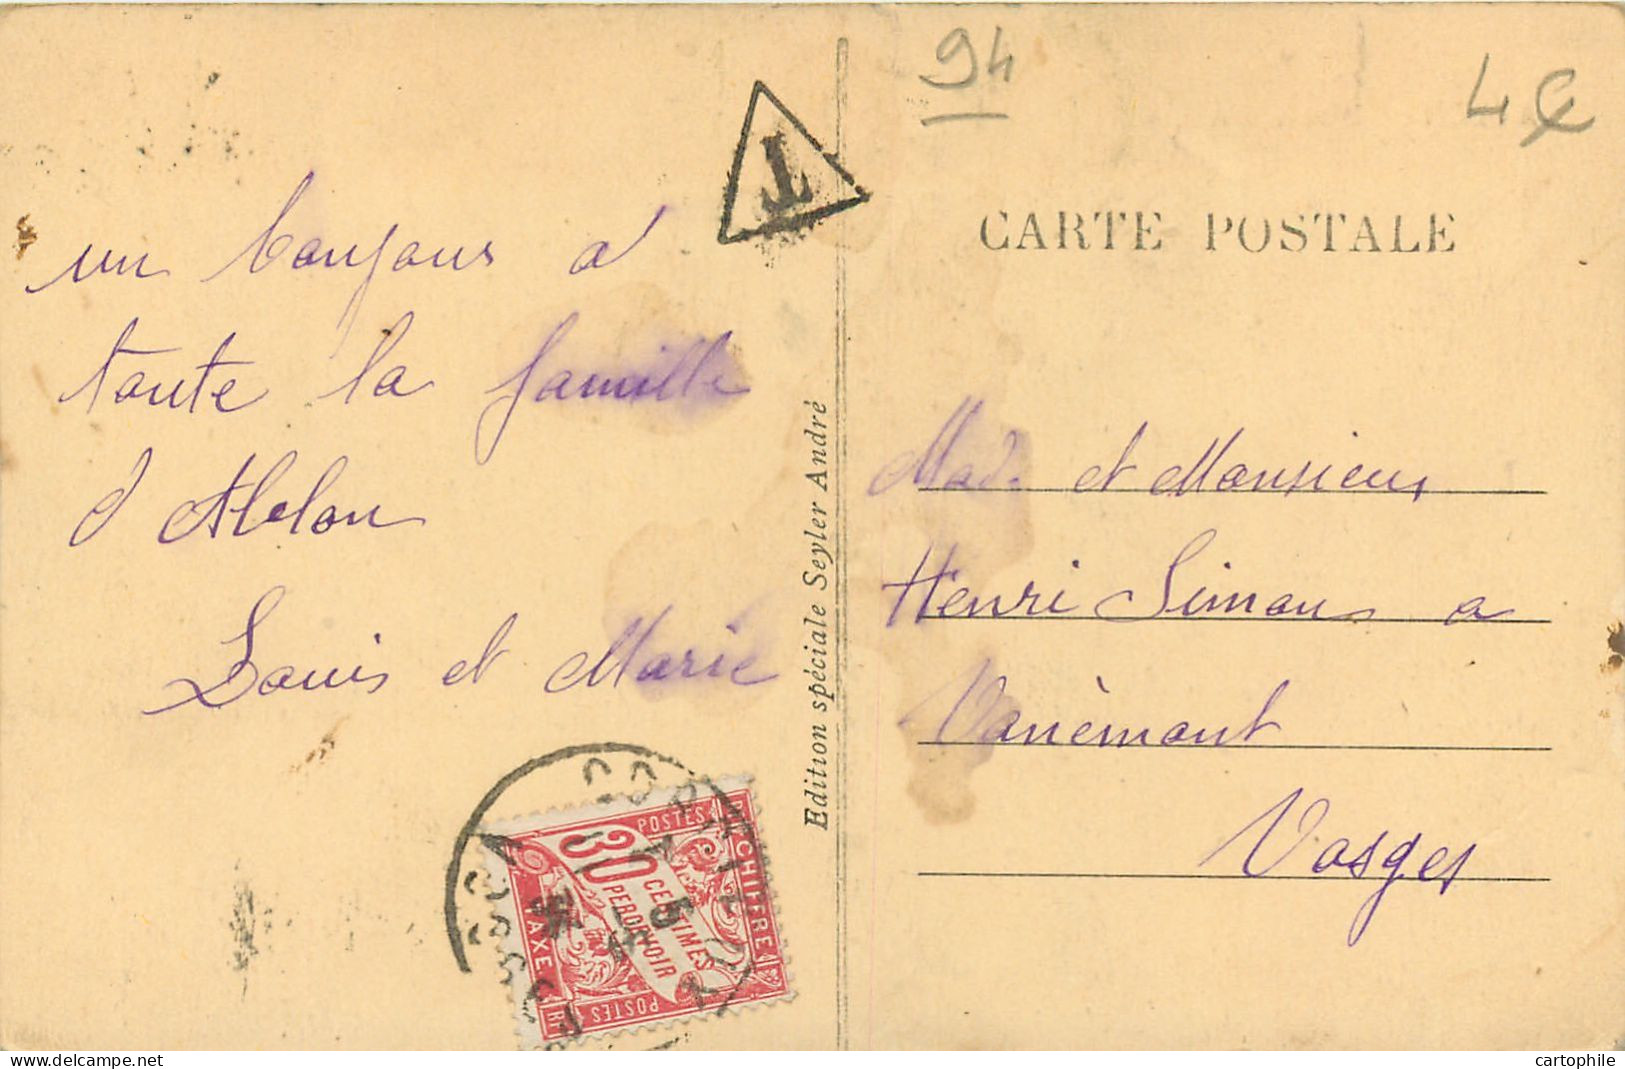 94
4€
T
CARTE POSTALE
un bonjour a
toute la famille
d Ablon
Louis et Marie
Edition spéciale Seyler André
Mad. et Monsieur
Henri Simon a
Vanémont
Vosges
POSTES
CHIFFRE
30
CENTIMES
PERCEVOIR
TAXE
POSTES
RF
www.delcampe.net
cartophile